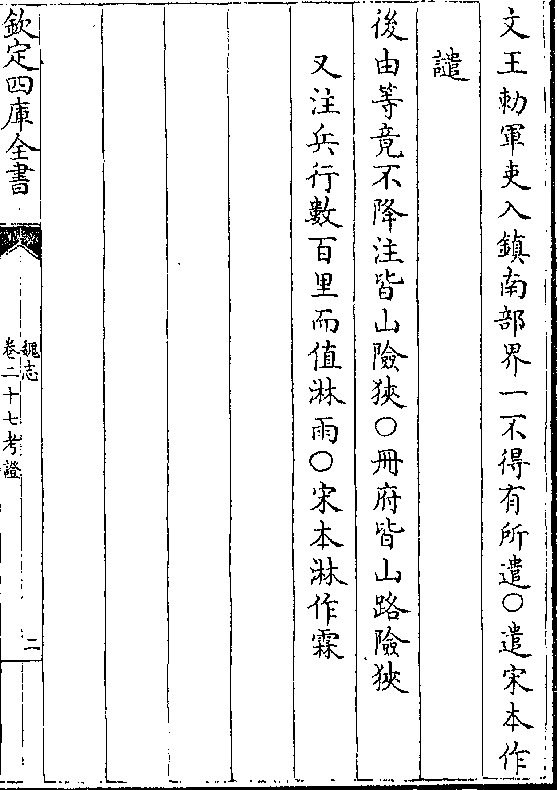 文王勅軍吏入鎮南部界一不得有所遣〇遣宋本作
譴
後由等竟不降注皆山險狹〇冊府皆山路險狹
又注兵行數百里而值淋雨〇宋本淋作霖
欽定四庫全書
魏志
卷二十七考證
二